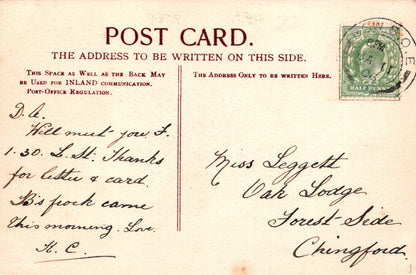 POST CARD.
THE ADDRESS TO BE WRITTEN ON THIS SIDE.
THIS SPACE AS WELL AS THE BACK MAY
BE USED FOR INLAND COMMUNICATION.
POST-OFFICE REGULATION.
THE ADDRESS ONLY TO BE WRITTEN HERE.
HALF PENNY
D. A.
Will meet you F.
1.30. L. St. Thanks
for letter & card.
B's frock came
this morning. Love
K. C.
Miss Leggett
Oak Lodge
Forest-Side
Chingford.